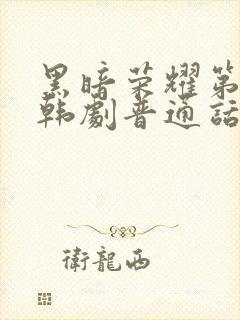 黑暗荣耀第
韩劇普通话
衛龍西